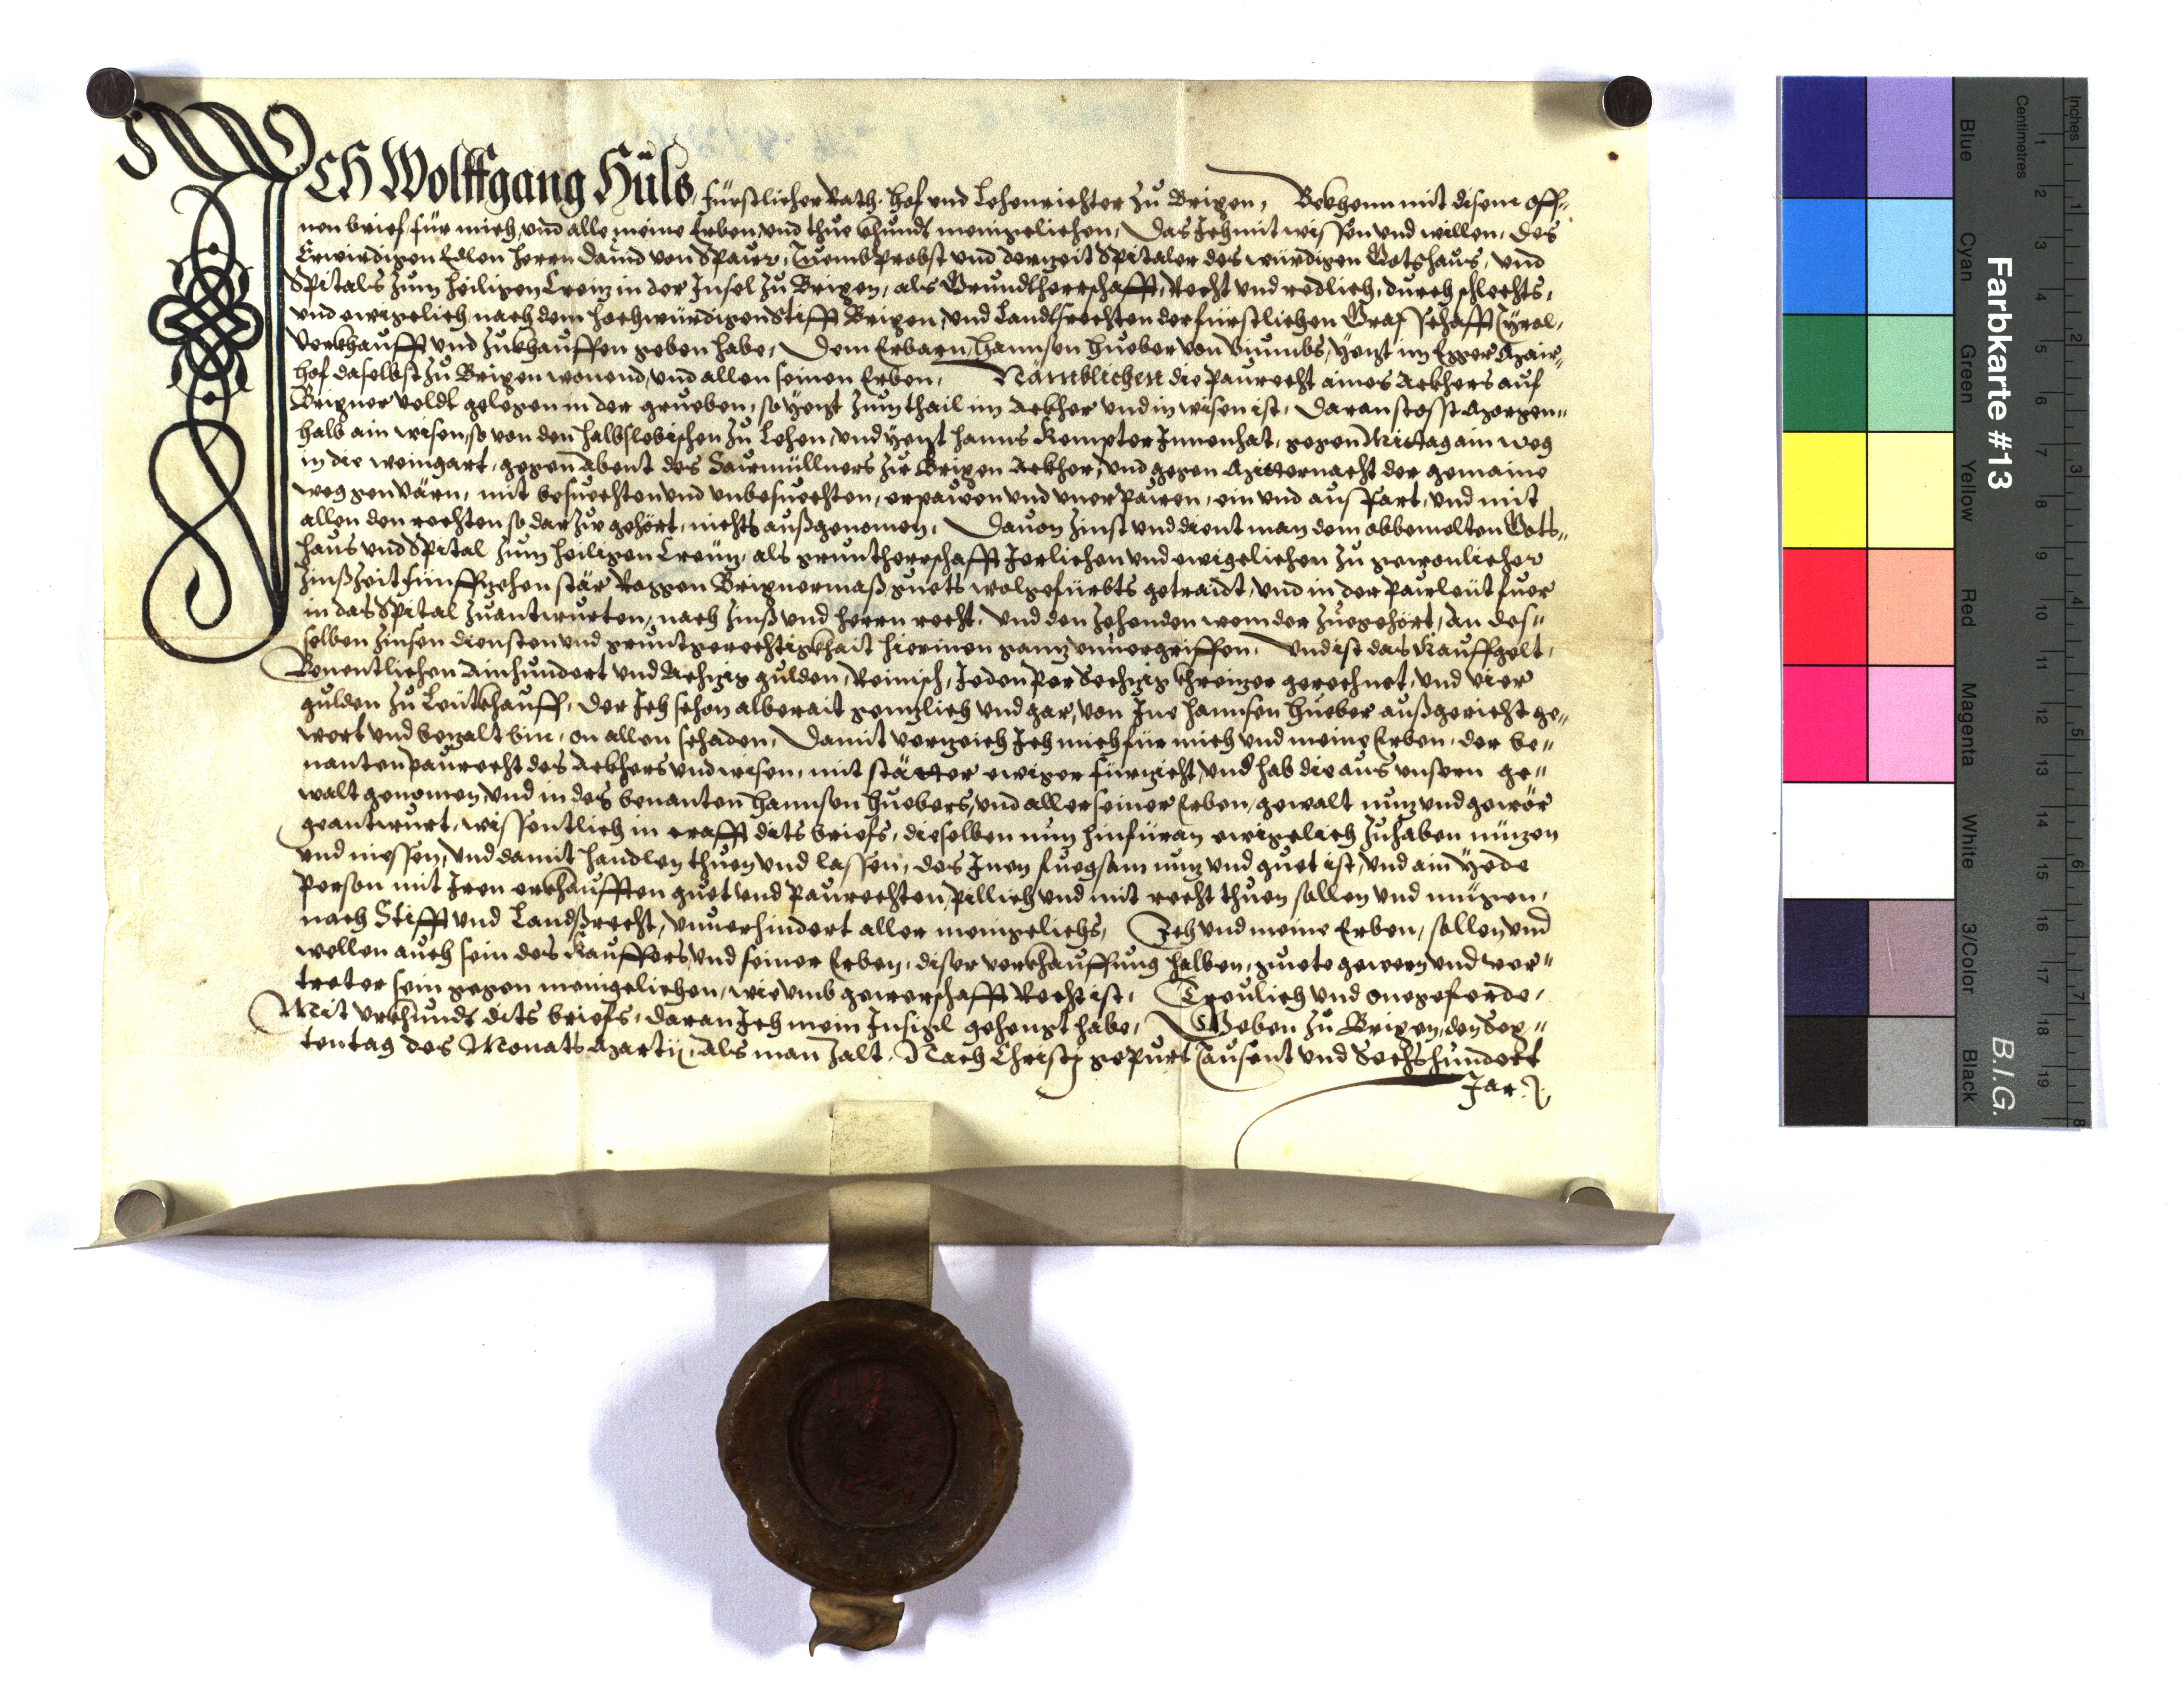 ICH Wolffgang Hüls, fürstlicher Rath, hof und Lehenrichter Zu Brixen, Bekhenn mit disem off„
nen brief, für mich und alle meine Erben, und thue khundt meingelichen, Das Ich mit wissen und willen, des
Erwirdigen Edlen herrn Dauid von Spaur, Thuembprobst und derzeit Spitaler des würdigen Gotshaus, und
Spitals zum heiligen Creuz in der Insel zu Brixen, als Grundtherrschafft, Recht und redlich, durchschlechts,
und ewigelich nach dem hochwürdigen Stifft Brixen, und Landtsrechten der fürstlichen Graffschafft Tyrol,
Verkhaufft und zukhauffen geben habe, Dem Erbarn, hannsen hueber von Viumbs, yezt im Egger Mair„
hof daselbst zu Brixen wonend, und allen seinen Erben, Nämblichen die Paurecht aines Ackhers auf
Brixner veldt gelegen in der grueben, so yezt zum thail im Ackher und in wisen ist, Daran stosst Morgen„
halb ain wisen, so von den halbslebischen zu Lehen, und yezt hanns Kempter Innenhat, gegen Mittag ain weg
in die weingart, gegen Abent des Saurmüllners zu Brixen Ackher, und gegen Mitternacht der gemaine
weg gen Värn, mit besuechten und unbesuechten, erpauen und unerpauen, ein und ausfart, und mit
allen den rechten so darzue gehört, nichts außgenomen, Dauon zinst und dient man dem obbemelten Gots„
haus und Spital zum heiligen Creuz, als gruntherrschafft Jerlichen und ewigelichen zu gewonlicher
Zinßzeit fünffzehen stär Roggen Brixnermaß guets wolgefürbts getraidt, und in der Paurleut fuer
in das Spital zuantwurten, nach zinß und herrn recht, und den zehenden wem der zuegehört, An des„
selben zinsen diensten und gruntgerechtigkhait hierinen ganz unuergriffen, Und ist das Kauffgelt,
Benentlichen Ainhundert und Achzig gulden, Reinisch, Jeden per Sechzig khreizer gerechnet, und vier
gulden zu Leutkhauff, Der Ich schon alberait genzlich und gar, von Ime hannsen hueber außgericht ge„
wert und bezalt bin, on allen schaden, Damit verzeich Ich mich für mich und meine Erben, der be„
nanten paurecht des Ackhers und wisen, mit stätter ewiger fürzicht, und hab die aus unsern ge„
walt genomen, und in des benanten hannsen huebers, und aller seiner Erben, gewalt nuz und gewör
geantwurt, wissentlich in crafft dits briefs, dieselben nun hinfüran ewigelich zuhaben nuzen
und niessen, und damit handlen thuen und lassen, des Inen fuegsam nuz und guet ist, und ain yede
Person mit Iren erkhaufften guet und Paurechten, pillich und mit recht thuen sollen und mügen,
nach Stifft und Landßrecht, unuerhindert aller meingelichs, Ich und meine Erben, sollen und
wellen auch sein des Kauffers, und seiner Erben, diser verkhauffung halben, guete gewern und ver„
treter sein gegen meingelichen, wie umb gewerschafft Recht ist, Treulich und onegeferde,
Mit urkhundt dits briefs, daran Ich mein Insigl gehengt habe, Geben zu Brixen, den Sex„
ten tag des Monats Martij, Als man zalt, Nach Christi gepurt Tausent und Sechshundert
Jar.
Farbkarte #13
B.I.G.
Blue
Cyan
Green
Yellow
Red
Magenta
White
3/Color
Black
Inches
Centimetres
1 2 3 4 5 6 7 8 9 10 11 12 13 14 15 16 17 18 19
1 2 3 4 5 6 7 8